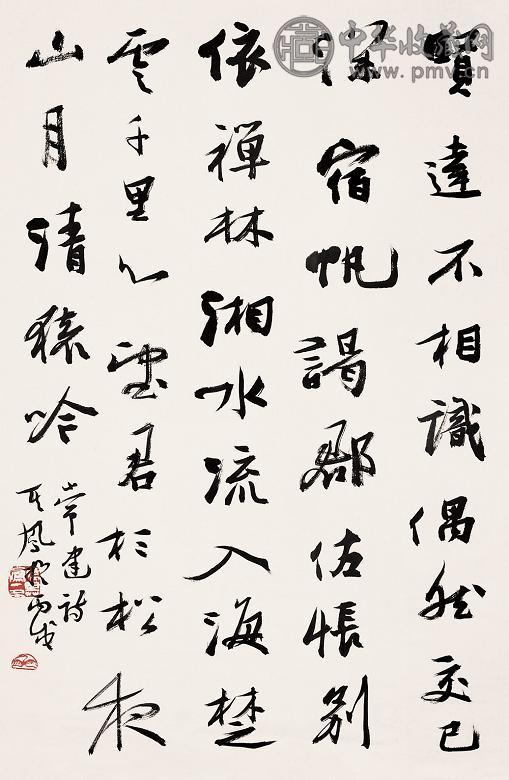 中华收藏网
www.pmv.cn
賢達不相識偶然交已
深宿帆謁郡佐悵別
依禪林湘水流入海楚
雲千里心望君杉松夜
山月清猿吟
常建詩
鳳於丙戌